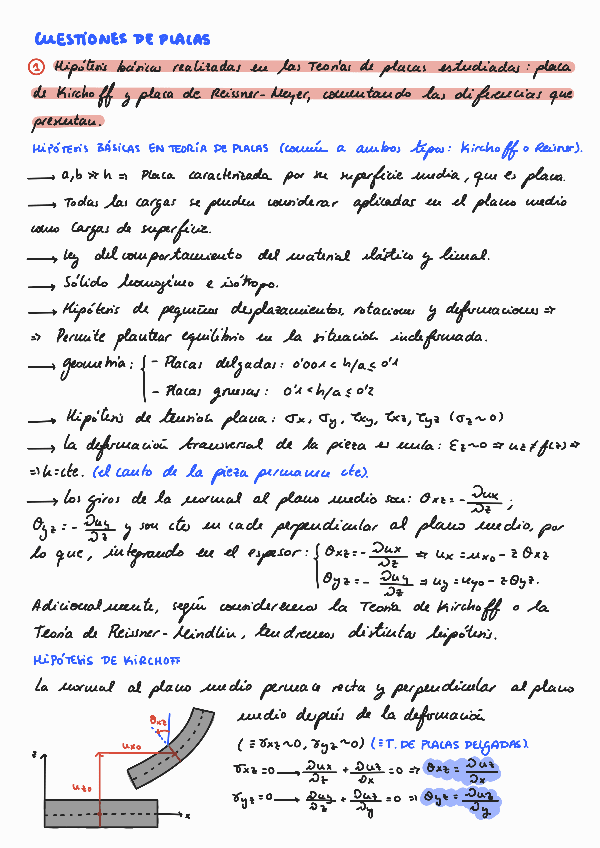 CUESTIONES DE PLACAS
① Hipótesis básicas realizadas en las Teorías de placas estudiadas: placa
de Kirchoff y placa de Reissner-Meyer, comentando las diferencias que
presentan.
HIPÓTESIS BÁSICAS EN TEORÍA DE PLACAS (común a ambos tipos: Kirchoff o Reisner).
→ a,b ≫ h ⇒ Placa caracterizada por su superficie media, que es plana.
→ Todas las cargas se pueden considerar aplicadas en el plano medio
como cargas de superficie.
→ Ley del comportamiento del material elástico y lineal.
→ Sólido homogéneo e isótropo.
→ Hipótesis de pequeños desplazamientos, rotaciones y deformaciones ⇒
⇒ Permite plantear equilibrio en la situación indeformada.
→ Geometría: { - Placas delgadas: 0'001 < h/a ≤ 0'1
- Placas gruesas: 0'1 < h/a ≤ 0'2
→ Hipótesis de tensión plana: σx, σy, τxy, τxz, τyz (σz ~ 0)
→ La deformación transversal de la pieza es nula: εz ~ 0 ⇒ uz ≠ f(z) ⇒
⇒ h = cte. (el canto de la pieza permanece cte).
→ Los giros de la normal al plano medio son: θxz = - ∂ux/∂z ;
θyz = - ∂uy/∂z y son ctes en cada perpendicular al plano medio, por
lo que, integrando en el espesor: { θxz = - ∂ux/∂z ⇒ ux = ux0 - z θxz
θyz = - ∂uy/∂z ⇒ uy = uy0 - z θyz.
Adicionalmente, según consideremos la Teoría de Kirchoff o la
Teoría de Reissner-Mindlin, tendremos distintas hipótesis.
HIPÓTESIS DE KIRCHOFF
La normal al plano medio permace recta y perpendicular al plano
medio después de la deformación
(≡ γxz ~ 0, γyz ~ 0) (≡ T. DE PLACAS DELGADAS)
γxz = 0 → ∂ux/∂z + ∂uz/∂x = 0 ⇒ θxz = ∂uz/∂x
γyz = 0 → ∂uy/∂z + ∂uz/∂y = 0 ⇒ θyz = ∂uz/∂y
θxz
ux0
z
uz0
x